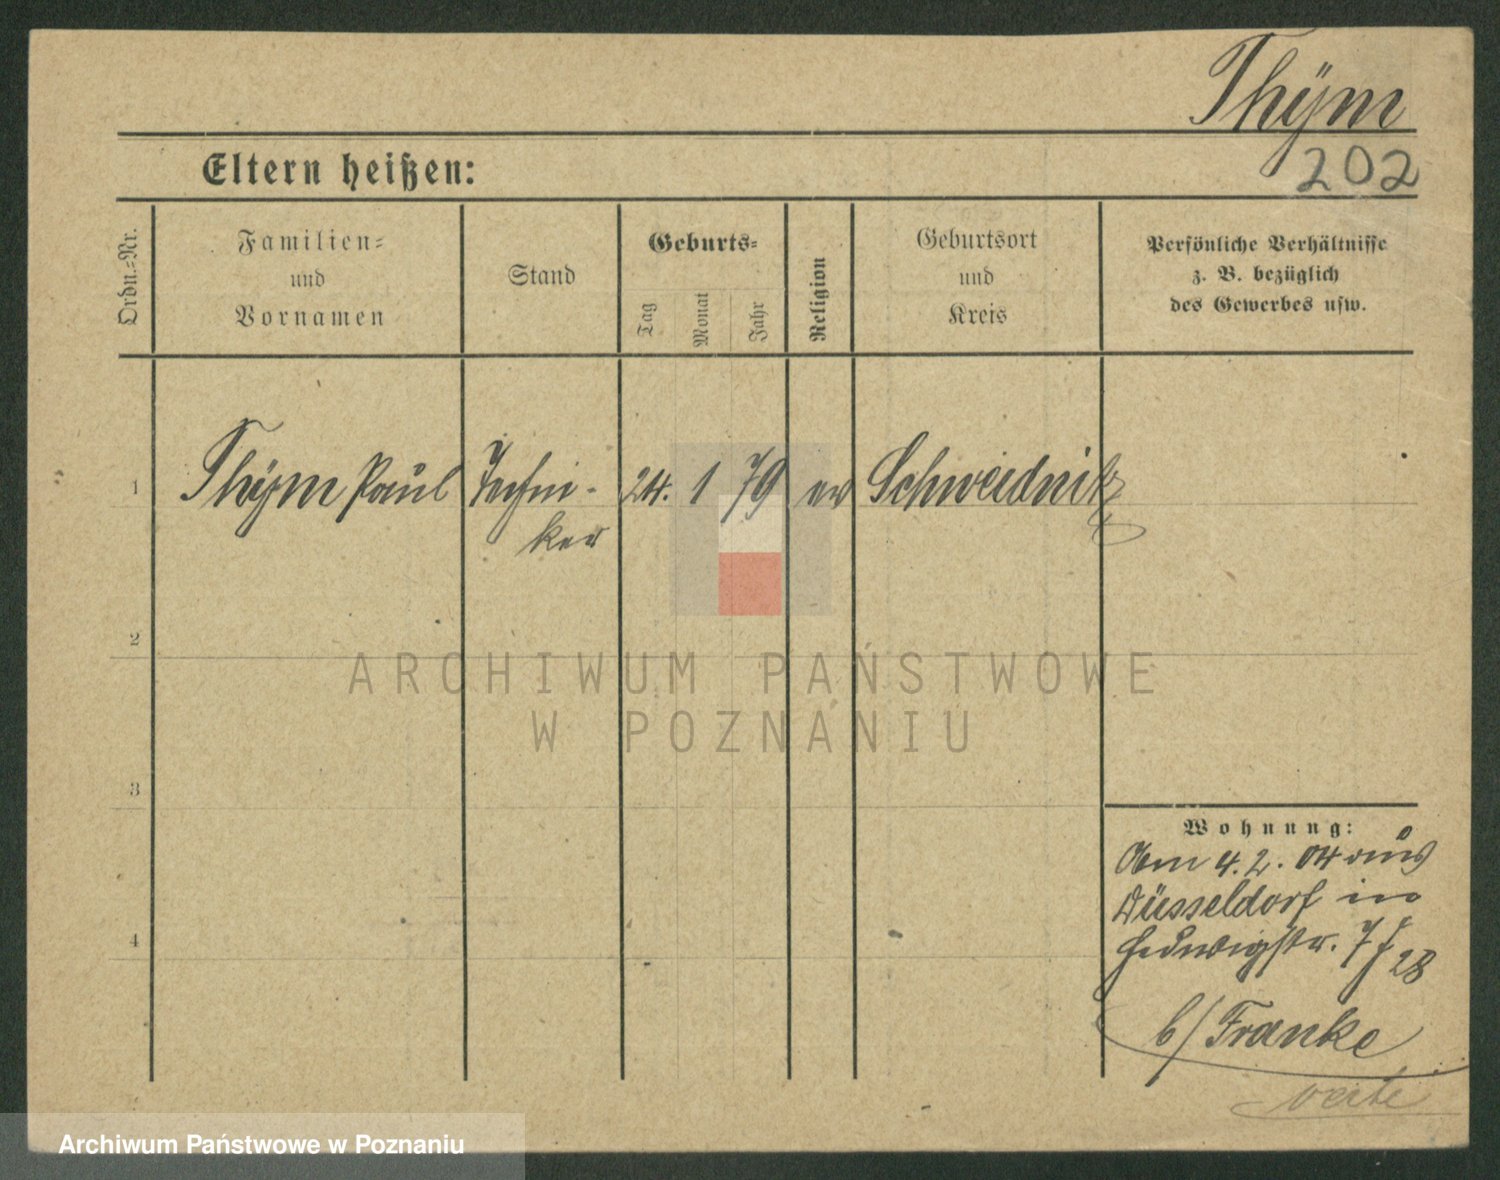 Thÿm
202
Eltern heißen:
Ordn.-Nr.
Familien-
und
Vornamen
Stand
Geburts-
Tag
Monat
Jahr
Religion
Geburtsort
und
Kreis
Persönliche Verhältnisse
z. B. bezüglich
des Gewerbes usw.
1 Thÿm Paul Techni- 24. 1 79 ev Schweidnitz
ker
2
3
4
Wohnung:
Am 4. 2. 04 aus
Düsseldorf in
Hedwigstr. 7
28
b/ Franke
verte
ARCHIWUM PAŃSTWOWE
W POZNANIU
Archiwum Państwowe w Poznaniu